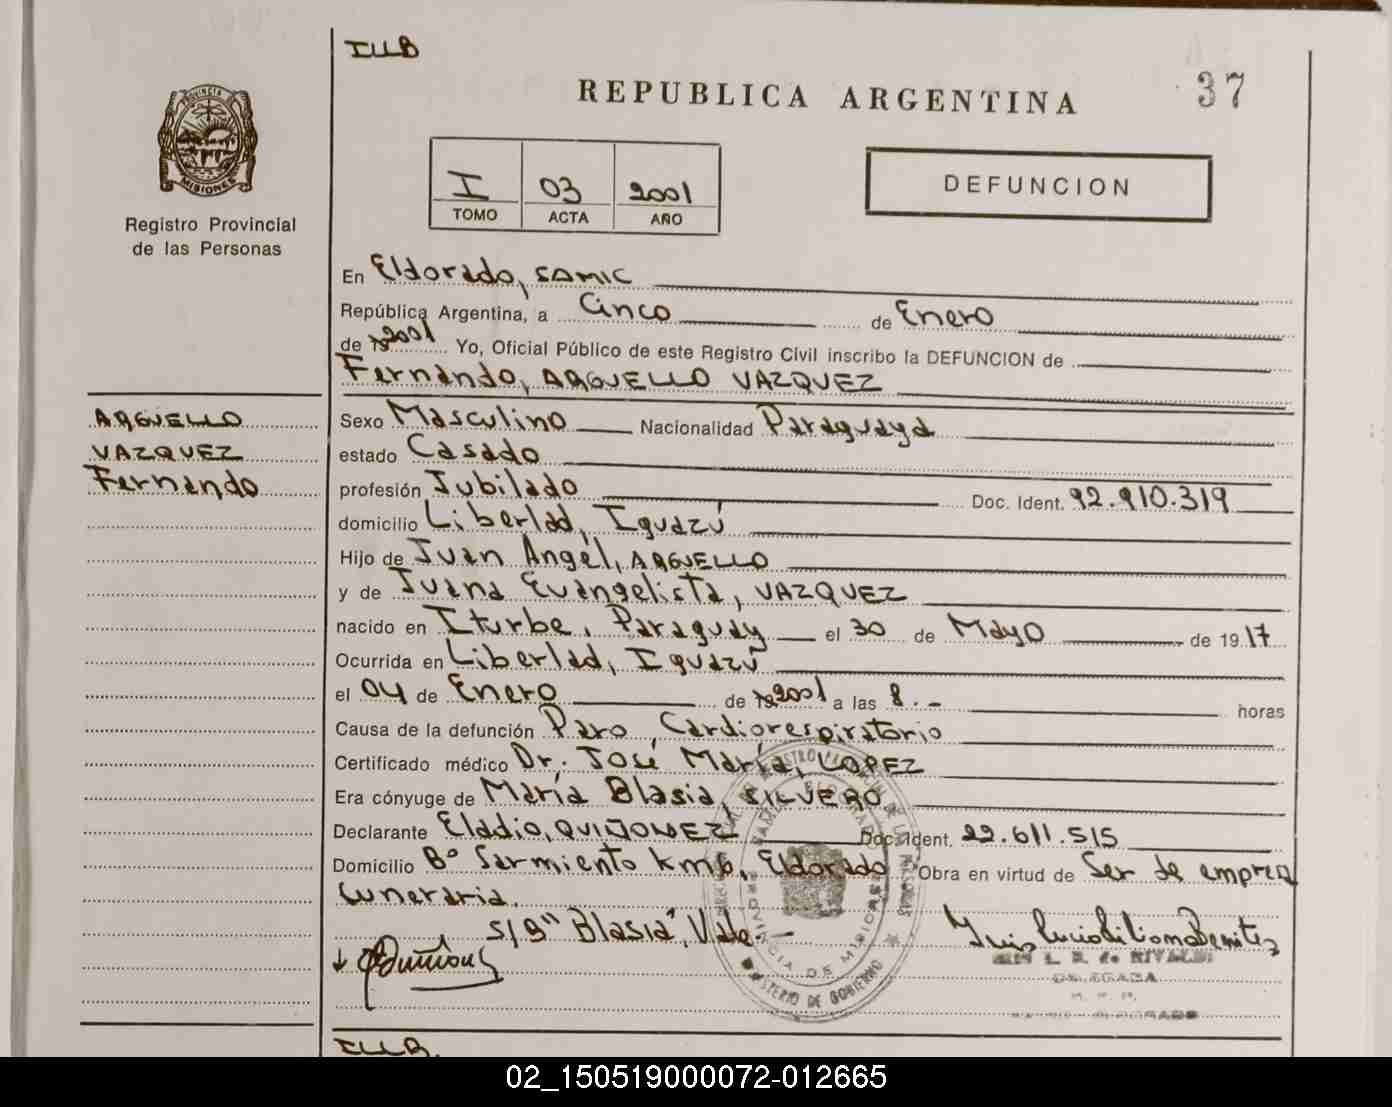 ILLB
REPUBLICA ARGENTINA
37
PROVINCIA
MISIONES
Registro Provincial
de las Personas
I 03 2001
TOMO ACTA AÑO
DEFUNCION
En Eldorado, SAMIC
República Argentina, a Cinco de Enero
de 2001 Yo, Oficial Público de este Registro Civil inscribo la DEFUNCION de
Fernando, ARGUELLO VAZQUEZ
ARGUELLO
VAZQUEZ
Fernando
Sexo Masculino Nacionalidad Paraguaya
estado Casado
profesión Jubilado Doc. Ident. 92.910.319
domicilio Libertad, Iguazú
Hijo de Juan Angel, ARGUELLO
y de Juana Evangelista, VAZQUEZ
nacido en Iturbe, Paraguay el 30 de Mayo de 1917
Ocurrida en Libertad, Iguazú
el 04 de Enero de 2001 a las 8.- horas
Causa de la defunción Paro Cardiorespiratorio
Certificado médico Dr. José María, LOPEZ
Era cónyuge de María Blasia, SILVERO
Declarante Eladio, QUIÑONEZ Doc. Ident. 22.611.515
Domicilio Bº Sarmiento km6, Eldorado Obra en virtud de Ser de empresa
funeraria.
S/B "Blasia", Vale.-
PROVINCIA DE MISIONES
MINISTERIO DE GOBIERNO
L. B. de RIVALDI
DELEGADA
ILLB.
02_150519000072-012665